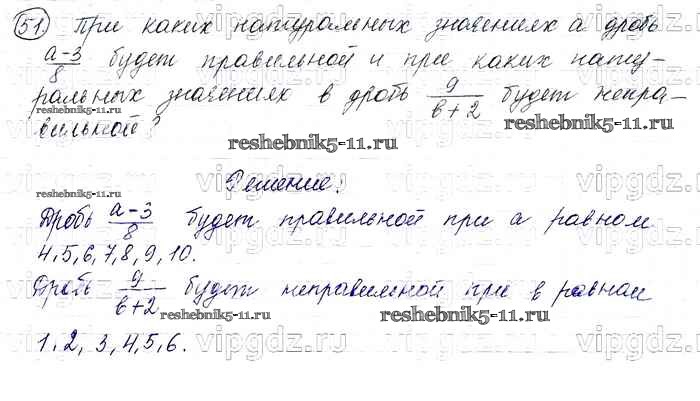 51. При каких натуральных значениях а дробь
а-3/8 будет правильной и при каких нату-
ральных значениях в дробь 9/в+2 будет непра-
вильной?
reshebnik5-11.ru
reshebnik5-11.ru
reshebnik5-11.ru
Решение:
Дробь а-3/8 будет правильной при а равном
4,5,6,7,8,9,10.
Дробь 9/в+2 будет неправильной при в равном
reshebnik5-11.ru
reshebnik5-11.ru
1,2,3,4,5,6.
vipgdz.ru